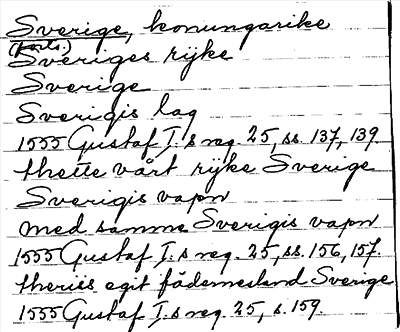 Sverige, konungarike
(forts.)
Sveriges rijke
Sverige
Sverigis lag
1555 Gustaf I.s reg. 25, ss. 137, 139
thette vårt rijke Sverige
Sverigis vapn
med samme Sverigis vapn
1555 Gustaf I.s reg. 25, ss. 156, 157.
theriis egit fädernesland Sverige
1555 Gustaf I.s reg. 25, s. 159.